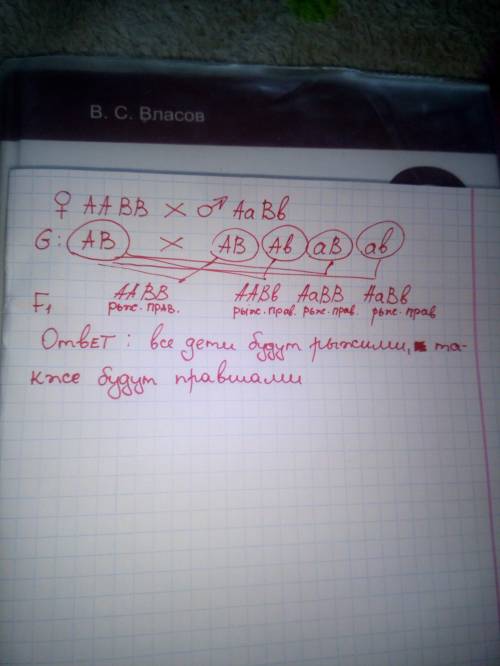 В. С. Власов
♀ AABB × ♂ AaBb
G: AB × AB Ab aB ab
F₁ AABB AABb AaBB AaBb
рыж. прав. рыж. прав. рыж. прав. рыж. прав
Ответ: все дети будут рыжими, та-
кже будут правшами